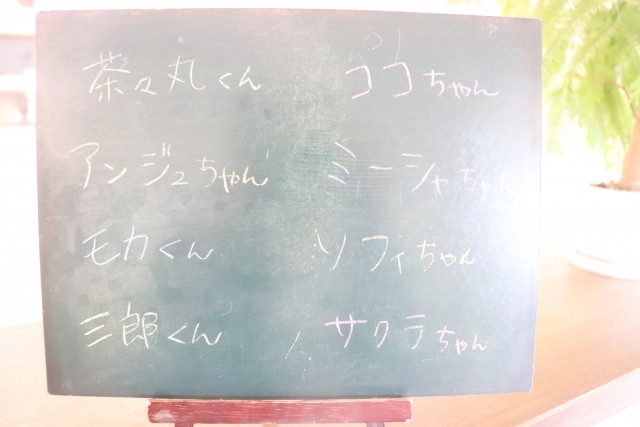 茶々丸くん
ココちゃん
アンジュちゃん
ミーシャちゃん
モカくん
ソフィちゃん
三郎くん
サクラちゃん